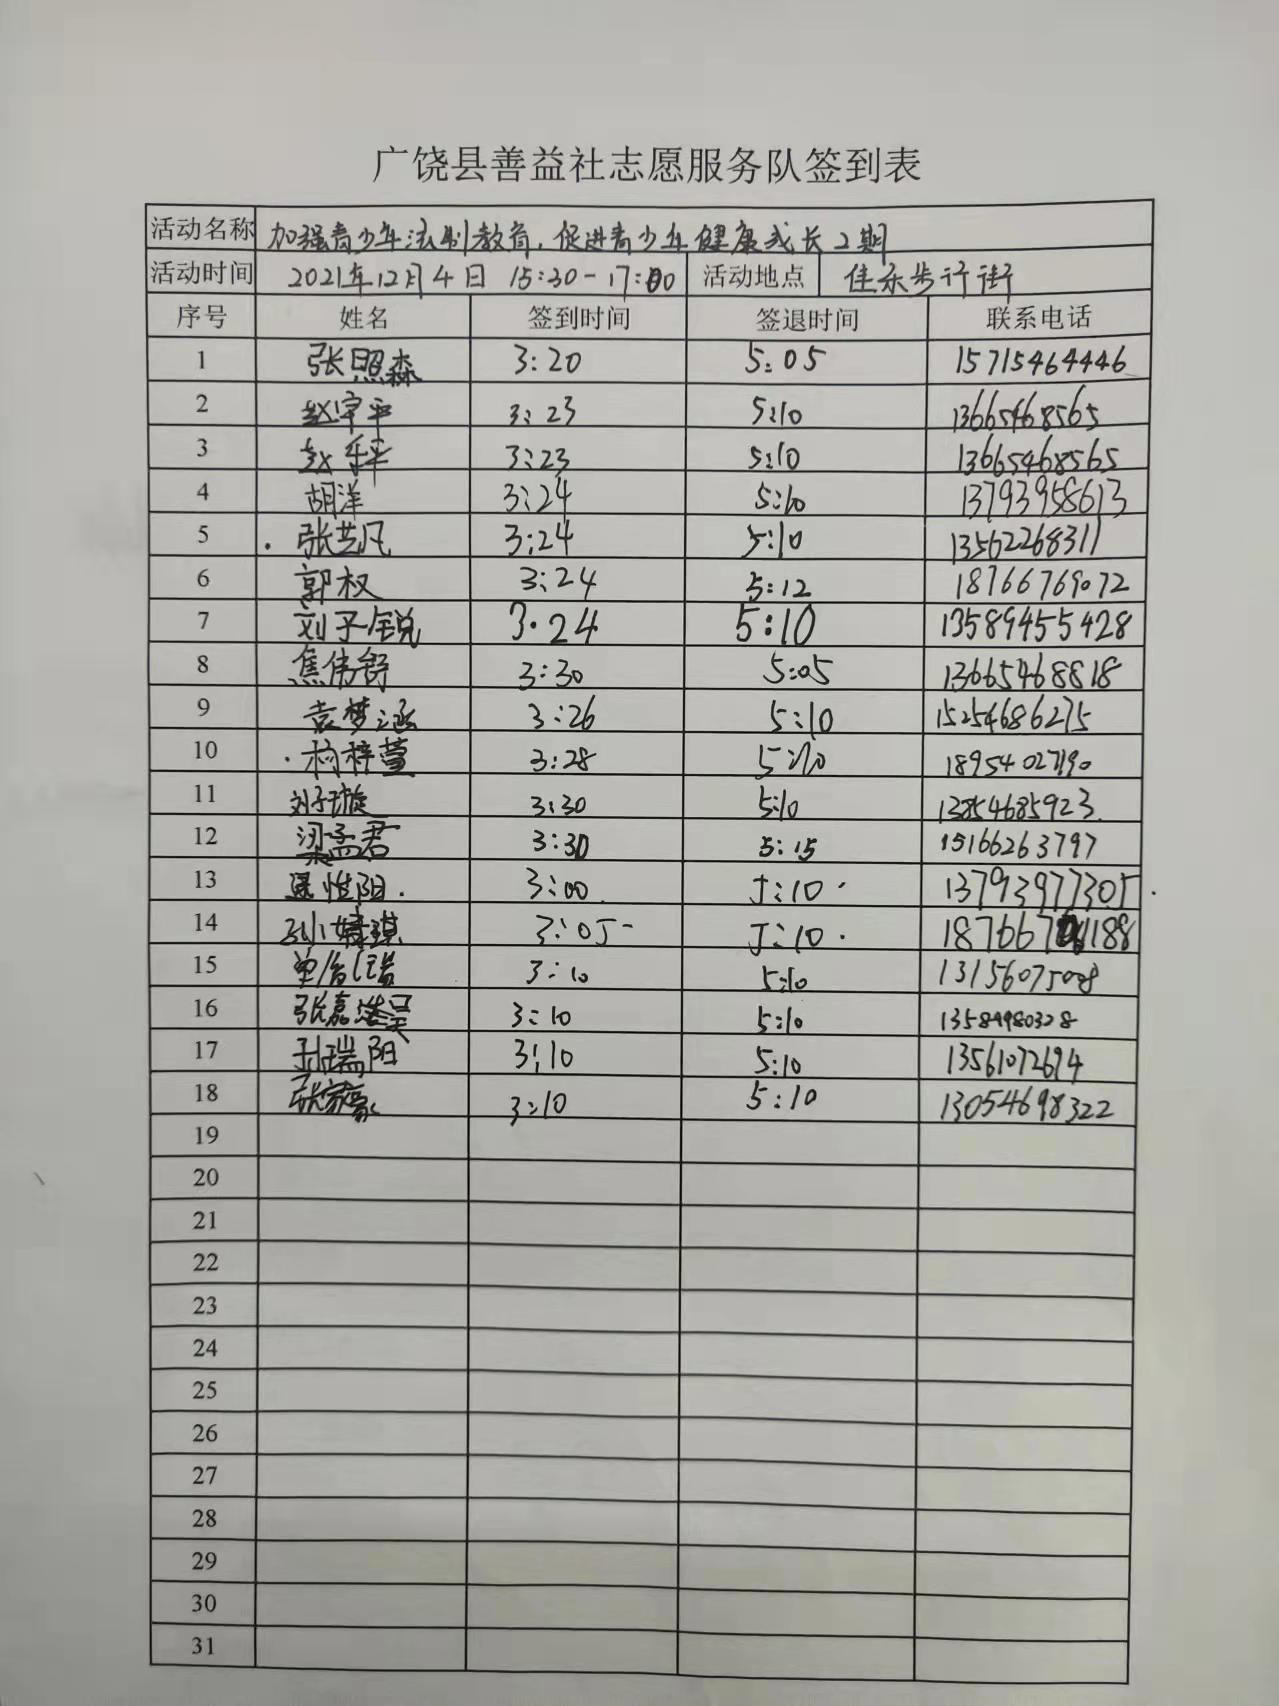 广饶县善益社志愿服务队签到表
活动名称 加强青少年法制教育,促进青少年健康成长2期
活动时间 2021年12月4日 15:30-17:00 活动地点 佳乐步行街
序号 姓名 签到时间 签退时间 联系电话
1 张照森 3:20 5:05 15715464446
2 赵宇平 3:23 5:10 13665468565
3 赵乐平 3:23 5:10 13665468565
4 胡洋 3:24 5:10 13793958613
5 张艺凡 3:24 5:10 13562268311
6 郭权 3:24 5:12 18766769072
7 刘子锐 3:24 5:10 13589455428
8 焦伟舒 3:30 5:05 13665468818
9 袁梦涵 3:26 5:10 15254686275
10 杨梓萱 3:28 5:10 18954027190
11 刘子璇 3:30 5:10 13854685923
12 梁孟君 3:30 5:15 15166263797
13 3:00 5:10 13793977305
14 3:05 5:10
15 3:10 5:10
16 张嘉浩 3:10 5:10 13589980328
17 孙瑞阳 3:10 5:10 13561072694
18 张家豪 3:10 5:10 13054698322
19
20
21
22
23
24
25
26
27
28
29
30
31